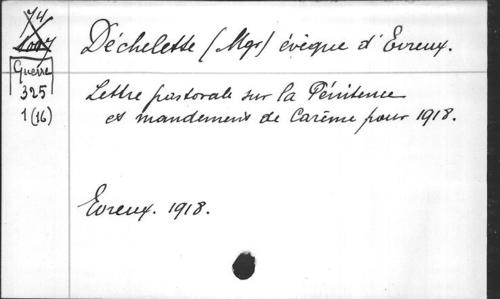 74
1007
Guerre
325
1 (16)
Déchelette (Mgr) évêque d'Evreux.
Lettre pastorale sur la Pénitence
et mandement de Carême pour 1918.
Evreux. 1918.